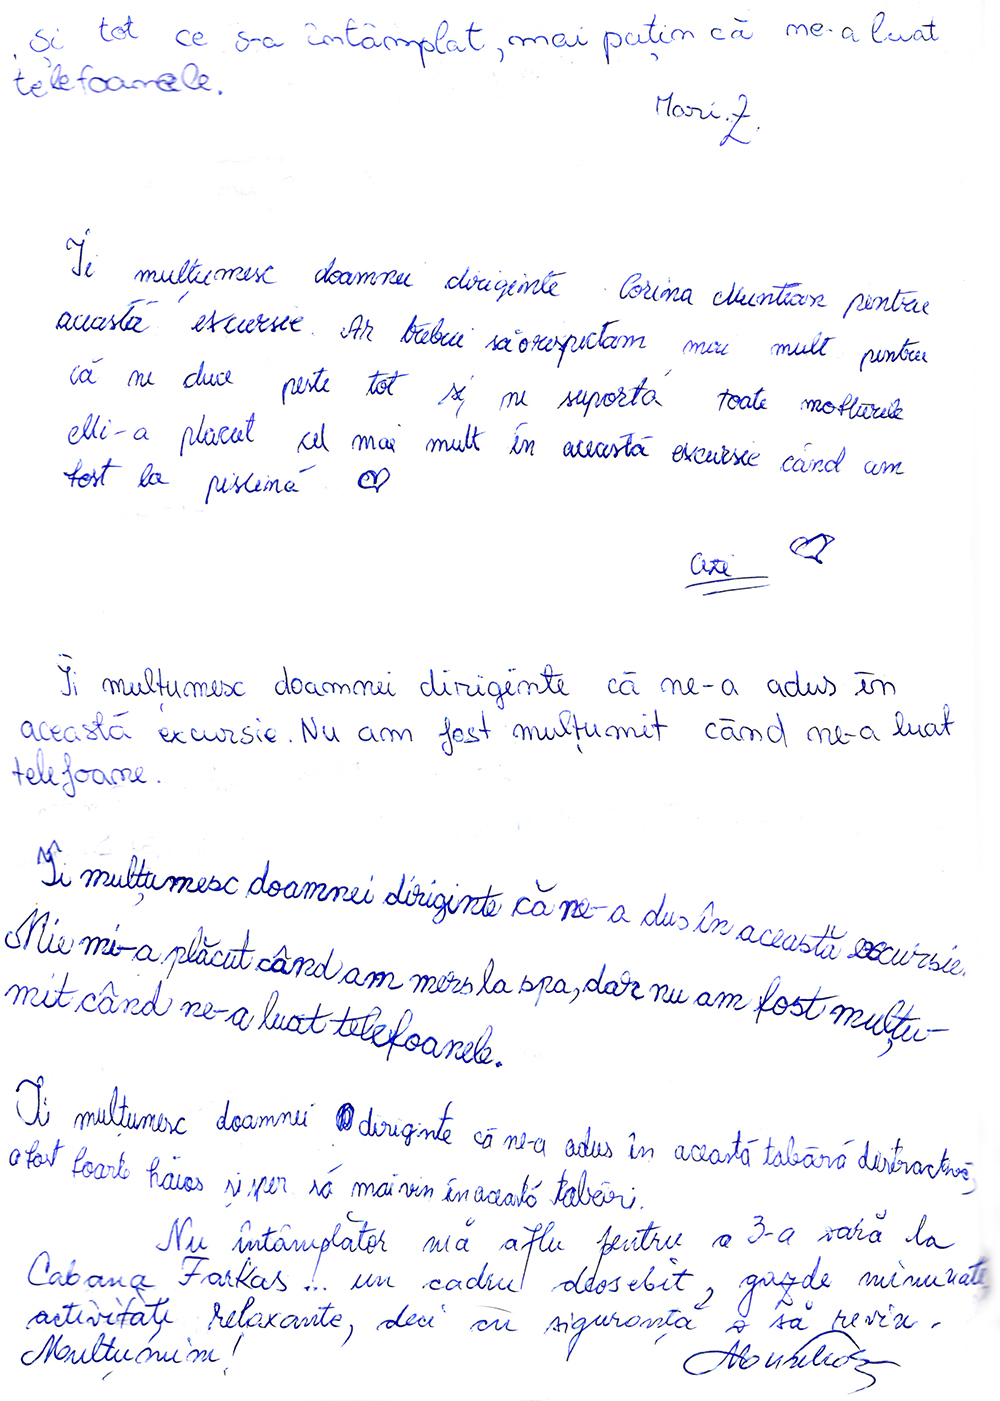 și tot ce s-a întâmplat, mai puțin că ne-a luat
telefoanele.
Mari. Z.
Îi mulțumesc doamnei diriginte Corina Muntean pentru
această excursie. Ar trebui să o respectam mai mult pentru
că ne duce peste tot și ne suportă toate mofturile
Mi-a placut cel mai mult în această excursie când am
fost la piscină
Îi mulțumesc doamnei diriginte că ne-a adus în
această excursie. Nu am fost mulțumit când ne-a luat
telefoane.
Îi mulțumesc doamnei diriginte că ne-a dus în această excursie.
Mie mi-a plăcut când am mers la spa, dar nu am fost mulțu-
mit când ne-a luat telefoanele.
Îi mulțumesc doamnei diriginte că ne-a adus în această tabără distractivă,
a fost foarte haios și sper să mai vin în această tabări.
Nu întâmplător mă aflu pentru a 3-a vară la
Cabana Farkas... un cadru deosebit, gazde minunate,
activități relaxante, deci cu siguranță o să revin.
Mulțumim!